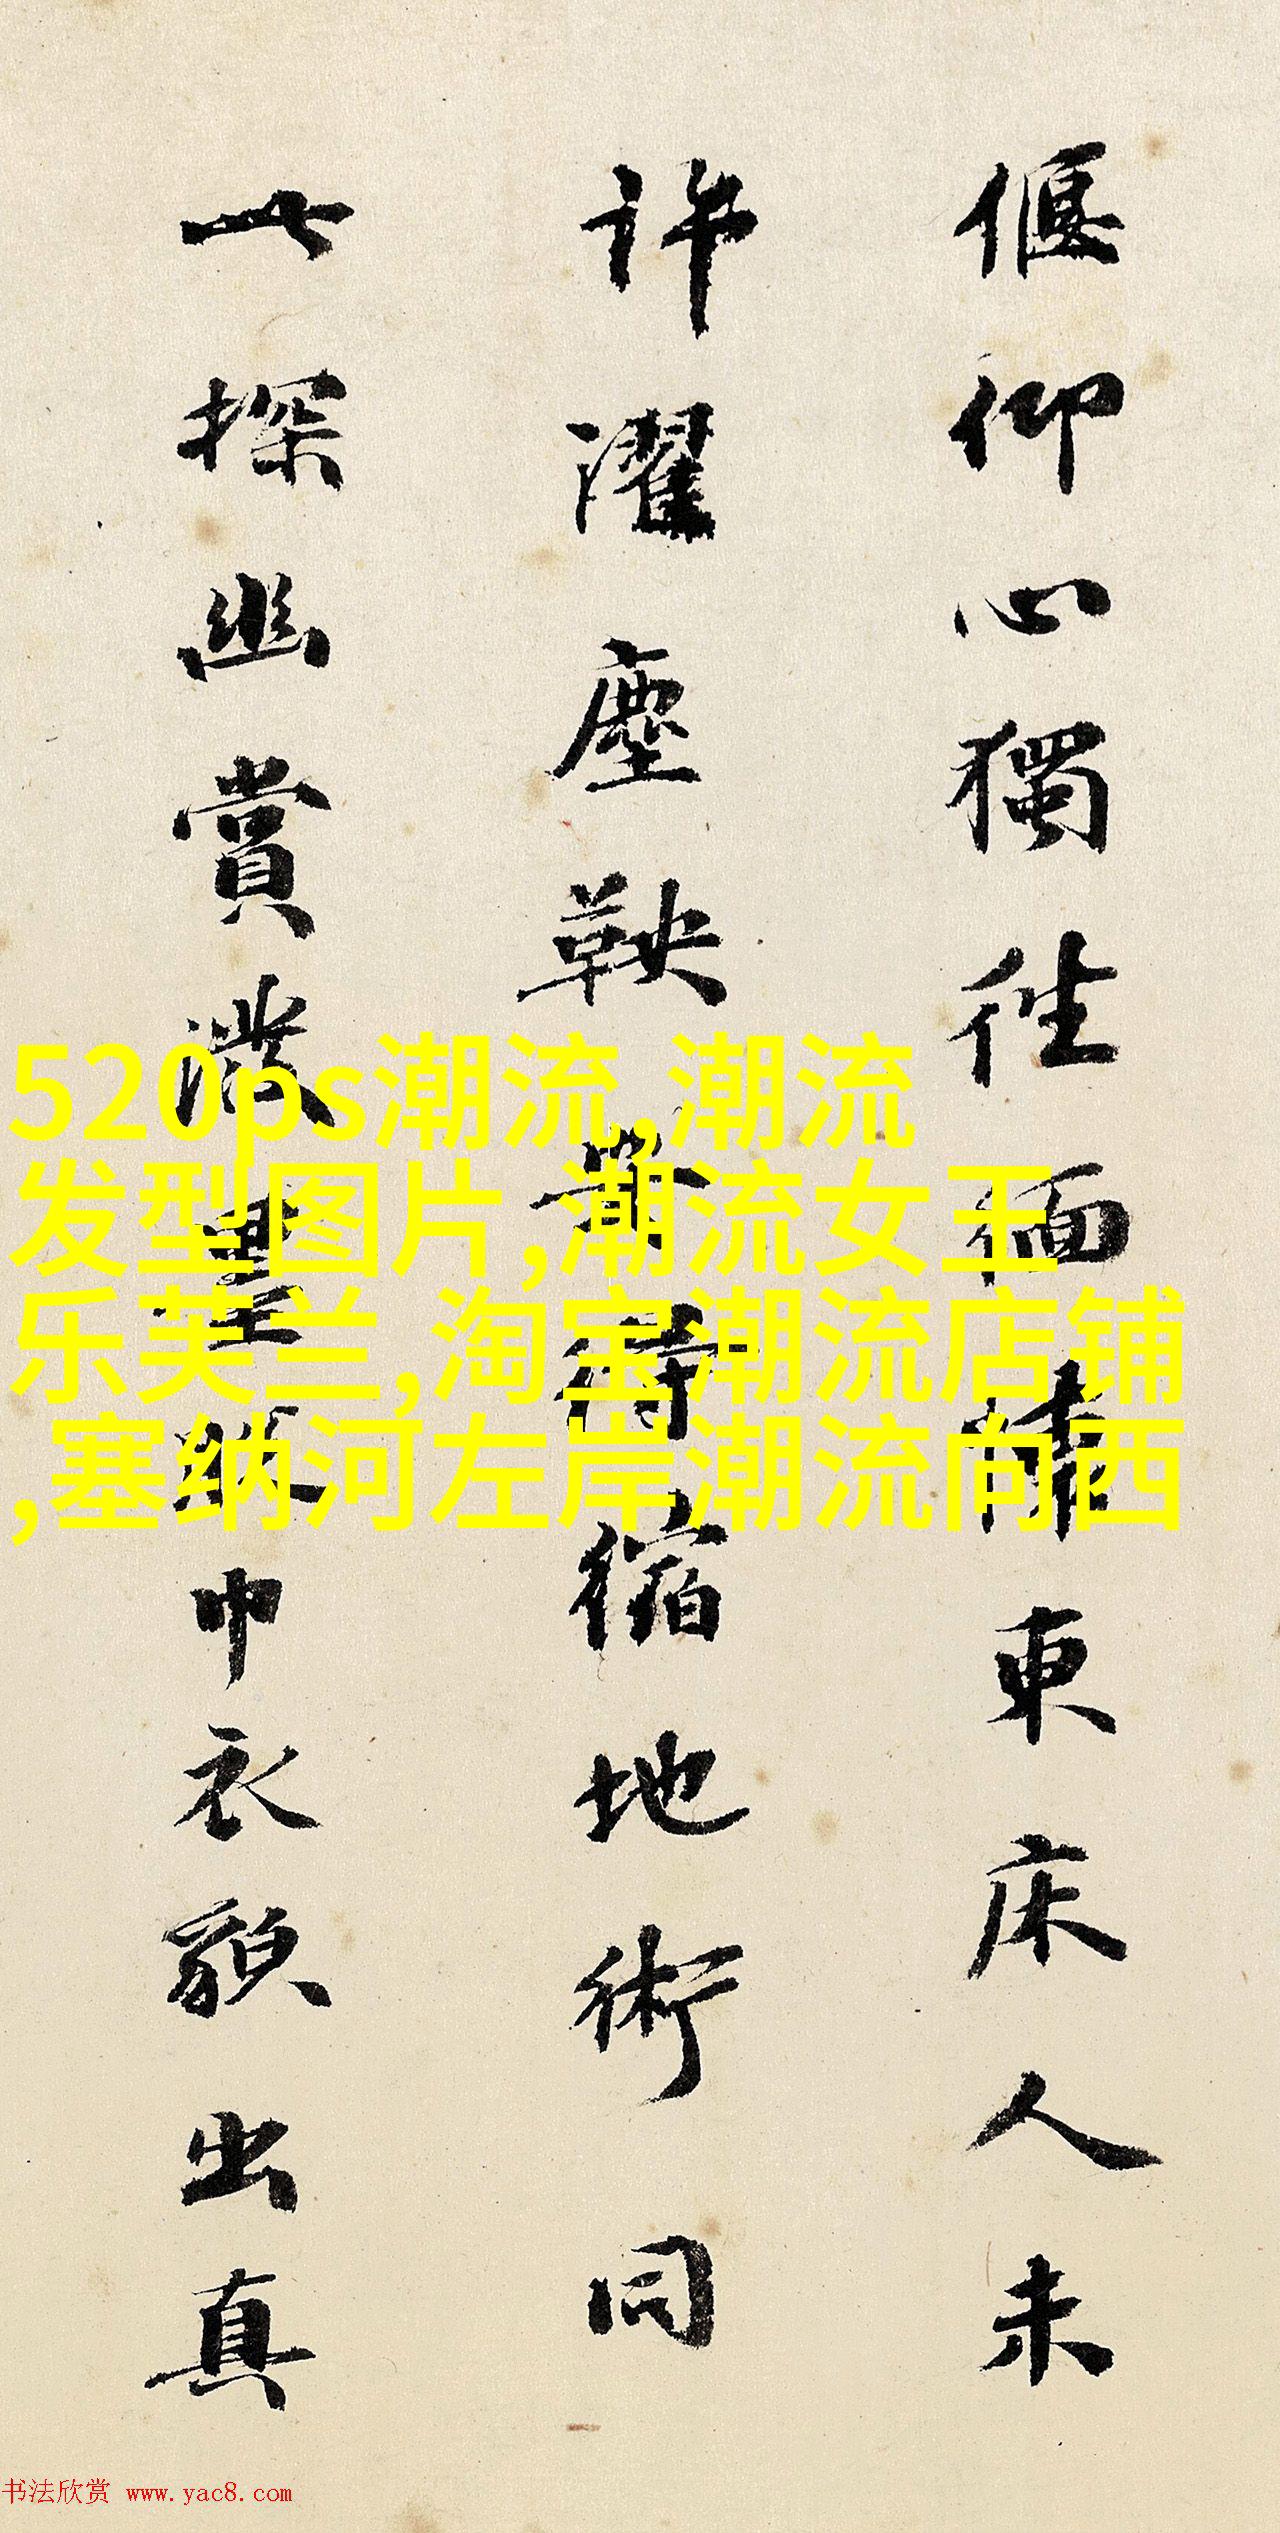 偃仰心獨往緬懷東床人未
許濯塵鞅安得縮地術同
一探幽賞潑墨縱巾衣貌出真
520ps潮流,潮流
发型图片,潮流女王
乐芙兰,淘宝潮流店铺
,塞纳河左岸潮流向西
书法欣赏 www.yac8.com